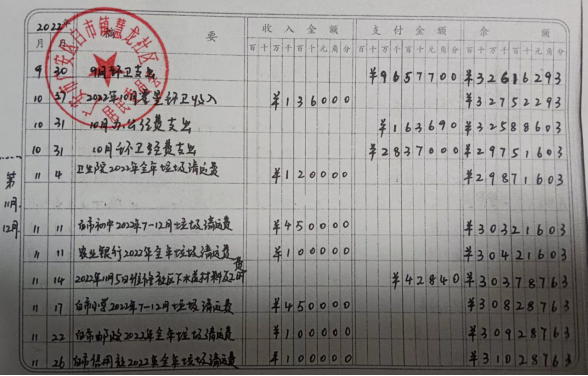 2022年 摘 要 收入金额 支付金额 余 额
月 日 百十万千百十元角分 百十万千百十元角分 百十万千百十元角分
9 30 9月环卫支出 ¥9657700 ¥32616293
10 31 2022年10月零星环卫收入 ¥136000 ¥32752293
10 31 10月办公经费支出 ¥163690 ¥32588603
10 31 10月环卫经费支出 ¥2837000 ¥29751603
11 4 卫生院2022年全年垃圾清运费 ¥120000 ¥29871603
11 11 白市初中2022年7-12月垃圾清运费 ¥450000 ¥30321603
11 11 农业银行2022年全年垃圾清运费 ¥100000 ¥30421603
11 14 2022年11月5日维修社区下水道材料及工时费 ¥42840 ¥30378763
11 17 白市小学2022年7-12月垃圾清运费 ¥450000 ¥30828763
11 22 白市邮政2022年全年垃圾清运费 ¥100000 ¥30928763
11 26 白市信用社2022年全年垃圾清运费 ¥100000 ¥31028763
第
11月.
12月